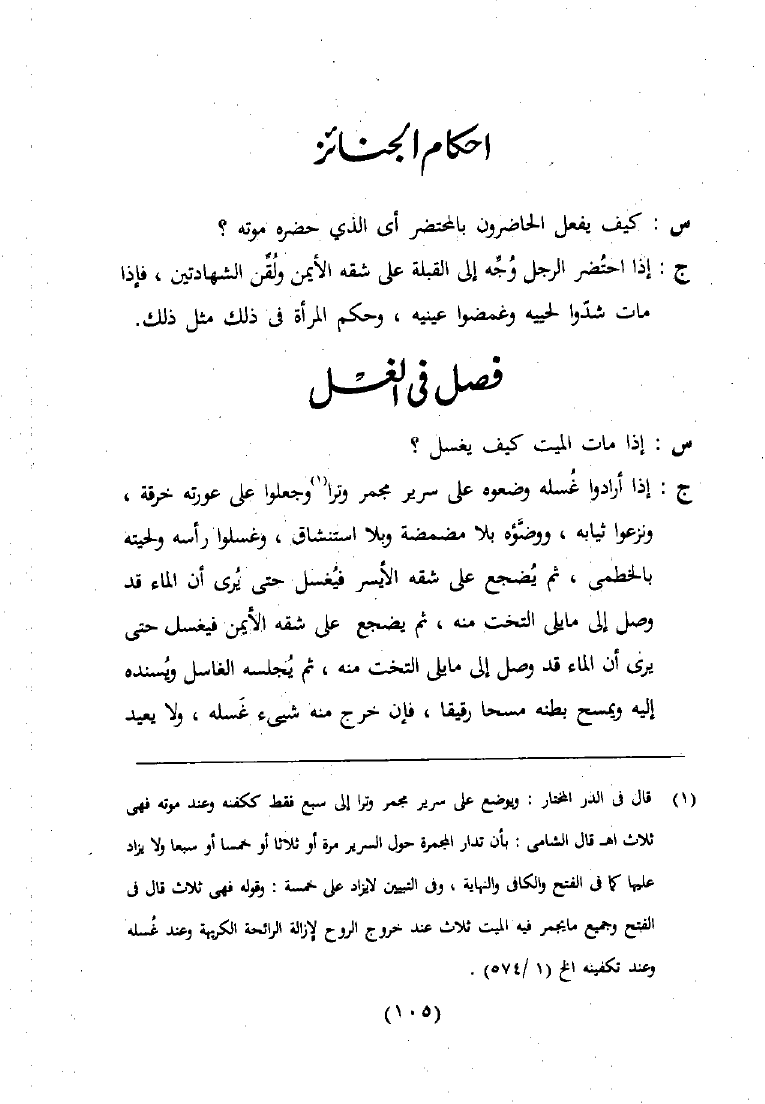 احكام الجنائز
س : كيف يفعل الحاضرون بالمحتضر أى الذي حضره موته ؟
ج : إذا احتُضر الرجل وُجِّه إلى القبلة على شقه الأيمن ولُقِّن الشهادتين ، فإذا
مات شدّوا لحييه وغمضوا عينيه ، وحكم المرأة فى ذلك مثل ذلك.
فصل فى الغسْل
س : إذا مات الميت كيف يغسل ؟
ج : إذا أرادوا غُسله وضعوه على سرير مجمر وترا(١) وجعلوا على عورته خرقة ،
ونزعوا ثيابه ، ووضَّؤه بلا مضمضة وبلا استنشاق ، وغسلوا رأسه ولحيته
بالخطمى ، ثم يُضجع على شقه الأيسر فيُغسل حتى يُرى أن الماء قد
وصل إلى مايلى التخت منه ، ثم يضجع على شقه الأيمن فيغسل حتى
يرى أن الماء قد وصل إلى مايلى التخت منه ، ثم يُجلسه الغاسل ويُسنده
إليه ويمسح بطنه مسحا رقيقا ، فإن خرج منه شيىء غَسله ، ولا يعيد
(١) قال فى الدر المختار : ويوضع على سرير مجمر وترا إلى سبع فقط ككفنه وعند موته فهى
ثلاث اهـ قال الشامى : بأن تدار المجمرة حول السرير مرة أو ثلاثا أو خمسا أو سبعا ولا يزاد
عليها كما فى الفتح والكافى والنهاية ، وفى التبيين لايزاد على خمسة : وقوله فهى ثلاث قال فى
الفتح وجميع مايجمر فيه الميت ثلاث عند خروج الروح لإزالة الرائحة الكريهة وعند غُسله
وعند تكفينه الخ (١ /٥٧٤) .
(١٠٥)